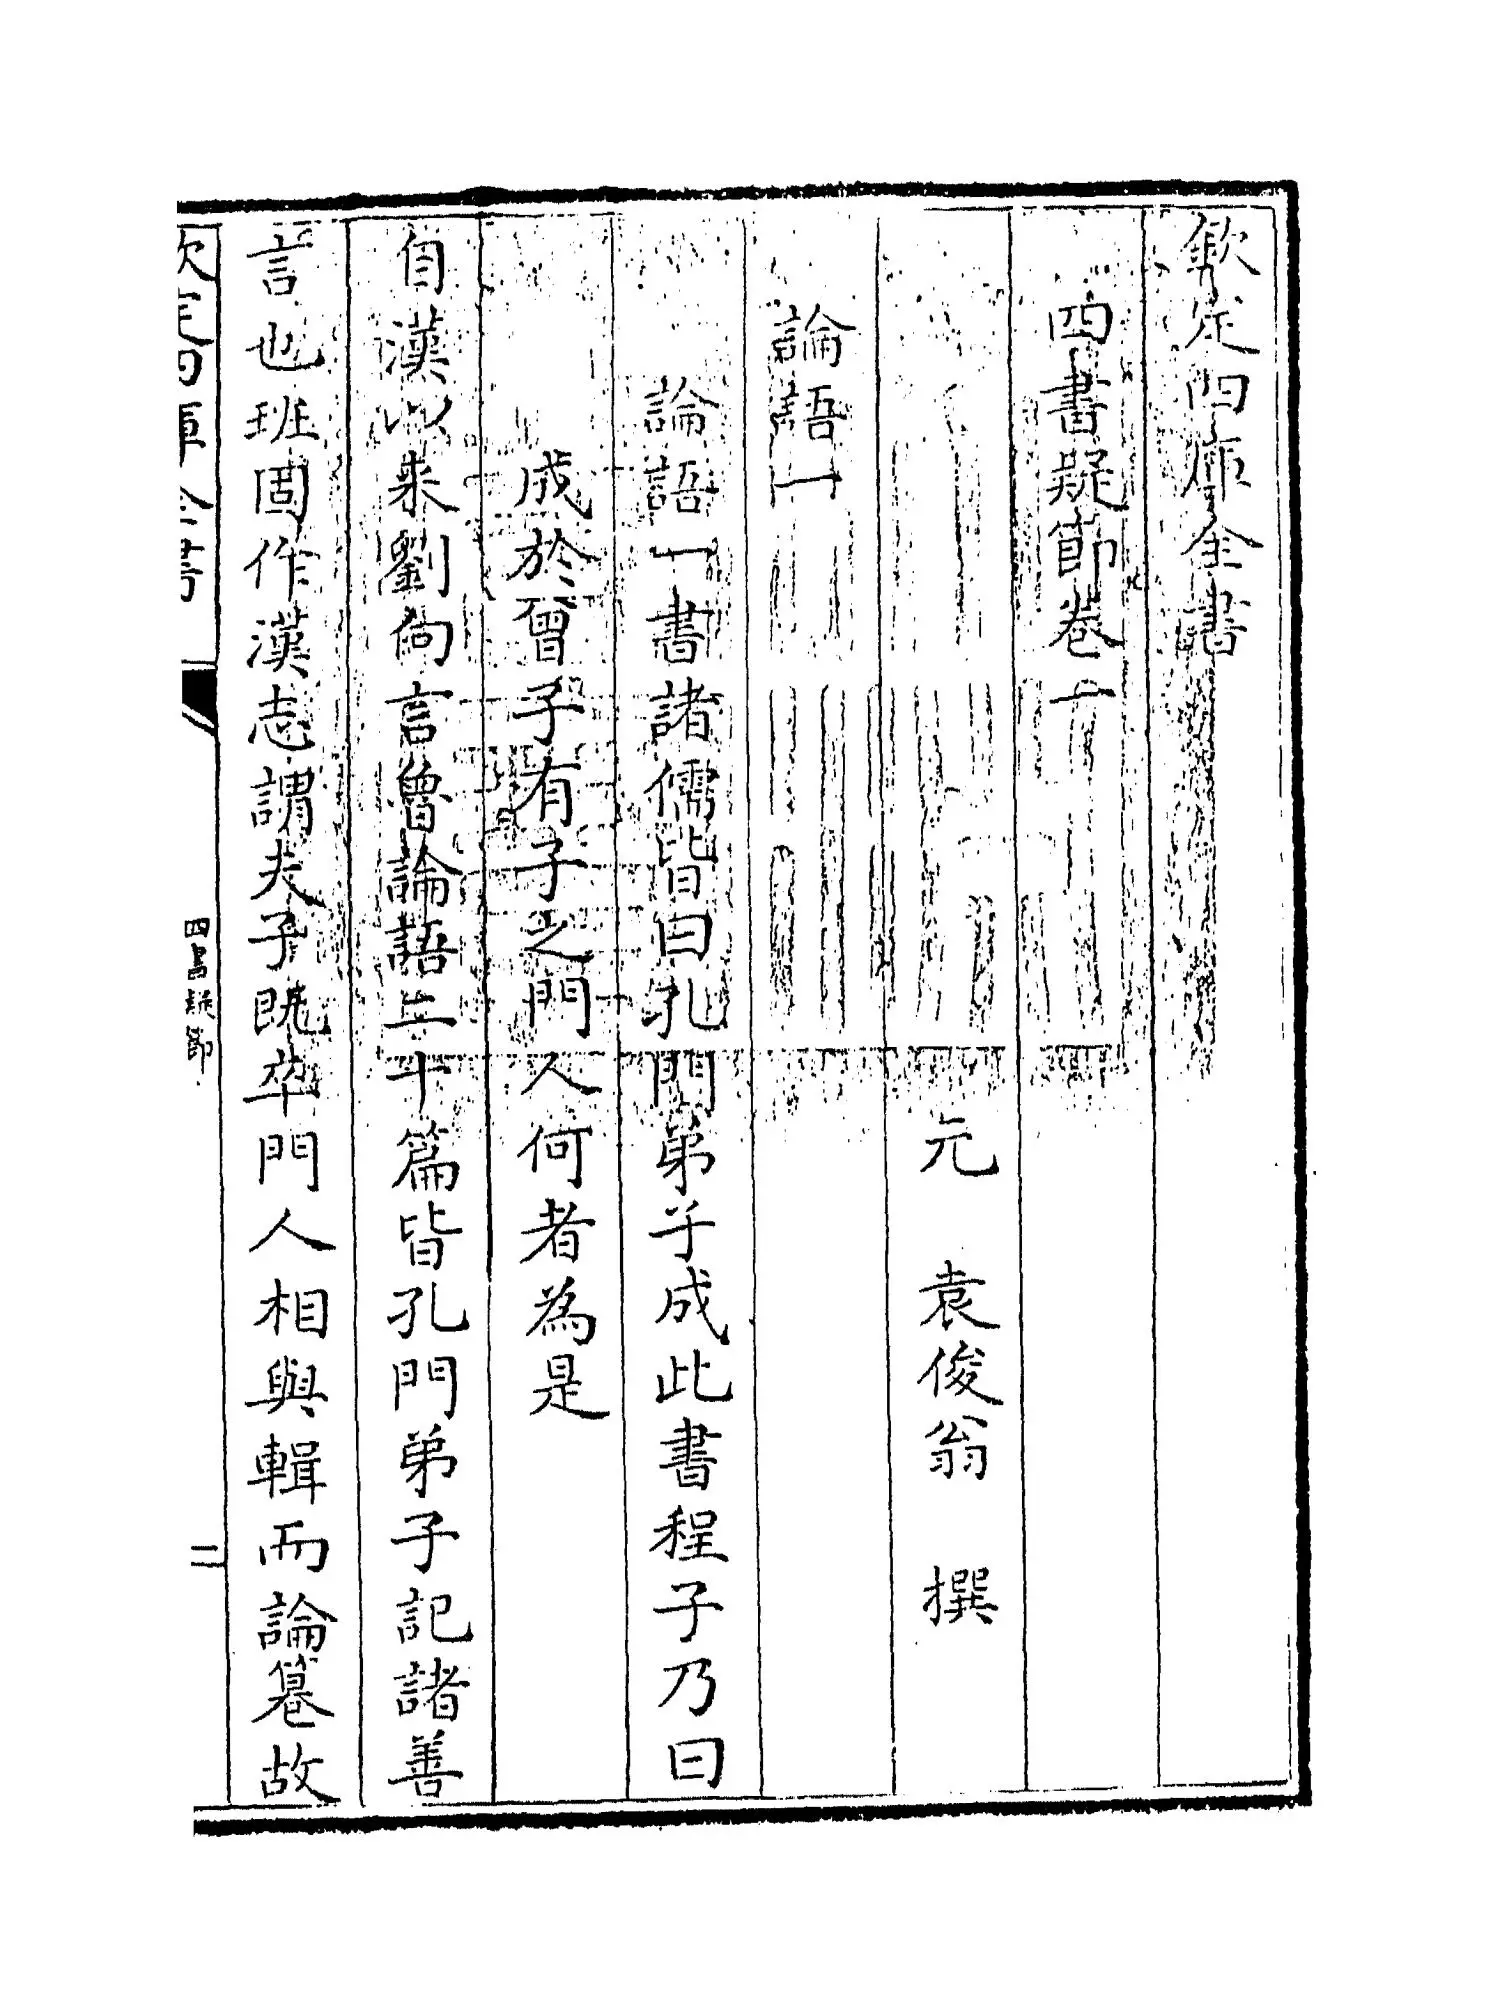 欽定四庫全書
四書疑節卷一
元　袁俊翁　撰
論語一
論語一書諸儒皆曰孔門弟子成此書程子乃曰
成於曾子有子之門人何者為是
自漢以來劉向言魯論語二十篇皆孔門弟子記諸善
言也班固作漢志謂夫子既卒門人相與輯而論篹故
欽定四庫全書
四書疑節
二